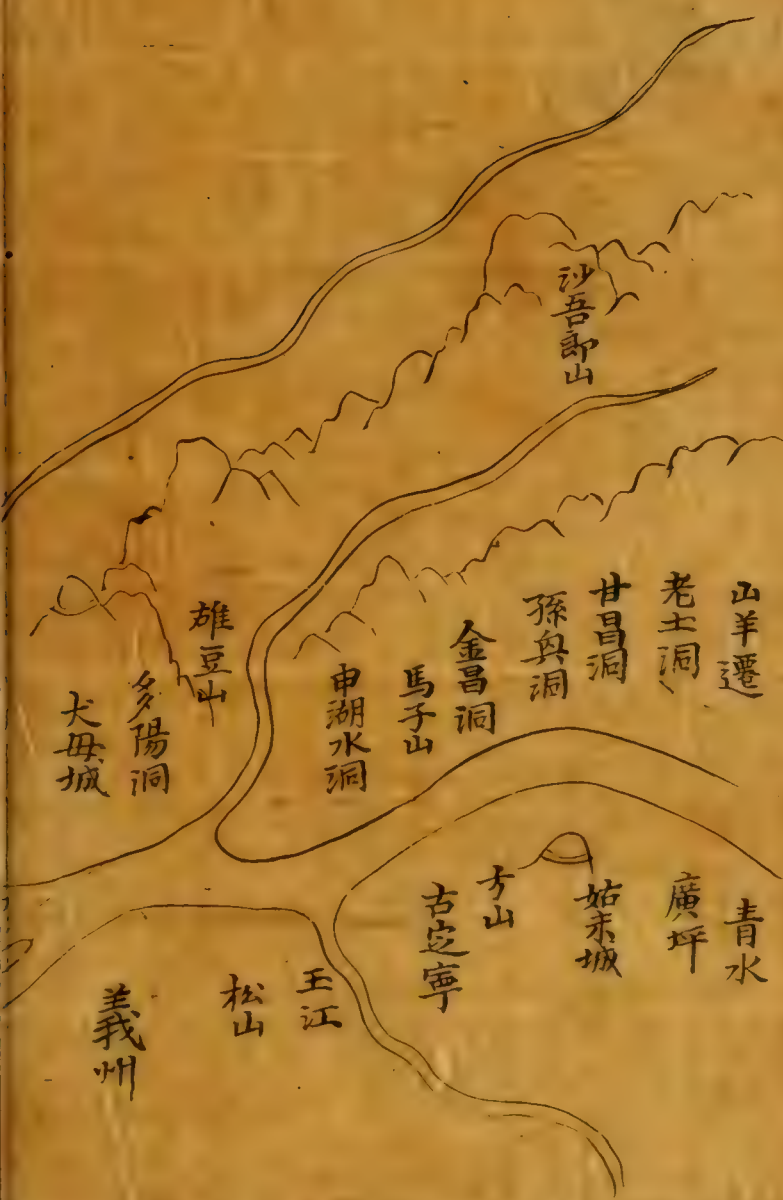 沙吾郎山
山羊遷
老土洞
甘昌洞
孫與洞
金昌洞
馬子山
申湖水洞
雄豆山
多陽洞
犬母城
青水
廣坪
姑未城
方山
古定寧
玉江
松山
義州